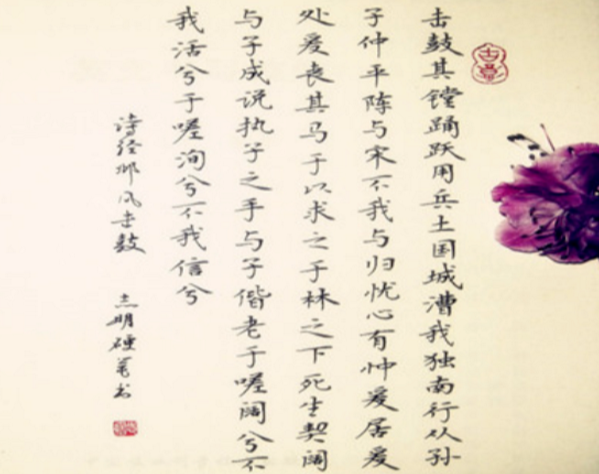 击鼓其镗踊跃用兵土国城漕我独南行从孙
子仲平陈与宋不我与归忧心有忡爰居爰
处爰丧其马于以求之于林之下死生契阔
与子成说执子之手与子偕老于嗟阔兮不
我活兮于嗟洵兮不我信兮
诗经邶风击鼓 志明硬笔书